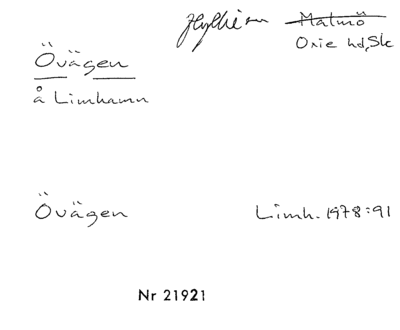 Hyllie sn Malmö
Oxie hd, Sk
Övägen
å Limhamn
Övägen Limh. 1978:91
Nr 21921